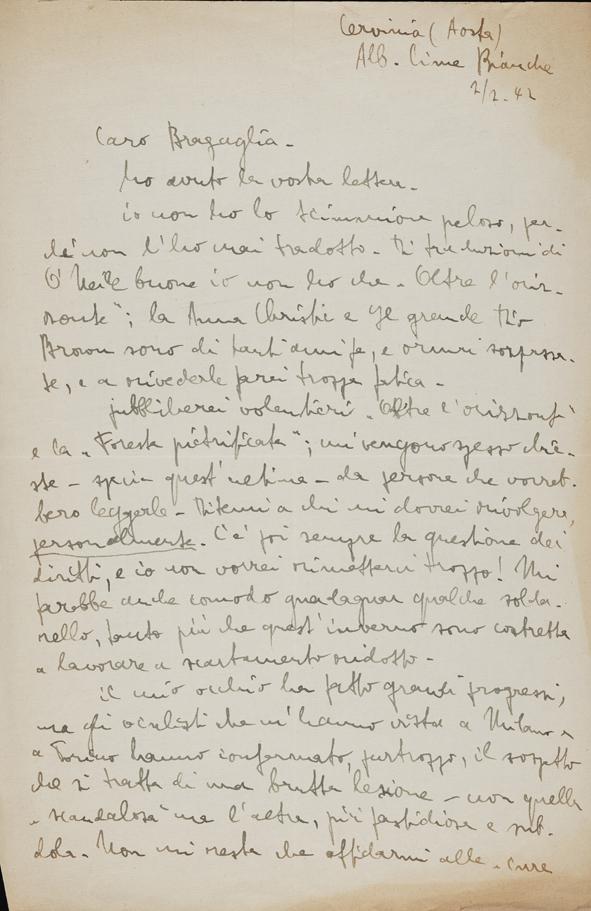 Cervinia (Aosta)
Alb. Cime Bianche
2/2. 42
Caro Bragaglia -
ho avuto la vostra lettera -
io non ho lo Scimmione peloso, per-
ché non l'ho mai tradotto - Di traduzioni di
O'Neill buone io non ho che "Oltre l'oriz-
zonte"; la Anna Christie e Il grande Dio
Brown sono di tanti anni fa, e ormai sorpassa-
te, e a rivederle farei troppa fatica -
pubblicherei volentieri "Oltre l'orizzonte"
e la "Foresta pietrificata"; mi vengono spesso chie-
ste - specie quest'ultima - da persone che vorreb-
bero leggerle - Ditemi a chi mi dovrei rivolgere,
personalmente. C'è poi sempre la questione dei
diritti, e io non vorrei rimetterci troppo! Mi
farebbe anche comodo guadagnar qualche solda-
rello, tanto più che quest'inverno sono costretta
a lavorare a scartamento ridotto -
il mio occhio ha fatto grandi progressi,
ma gli oculisti che m'hanno vista a Milano e
a Torino hanno confermato, purtroppo, il sospetto
che si tratta di una brutta lesione - non quella
"scandalosa" ma l'altra, più fastidiosa e sub-
dola. Non mi resta che affidarmi alle cure